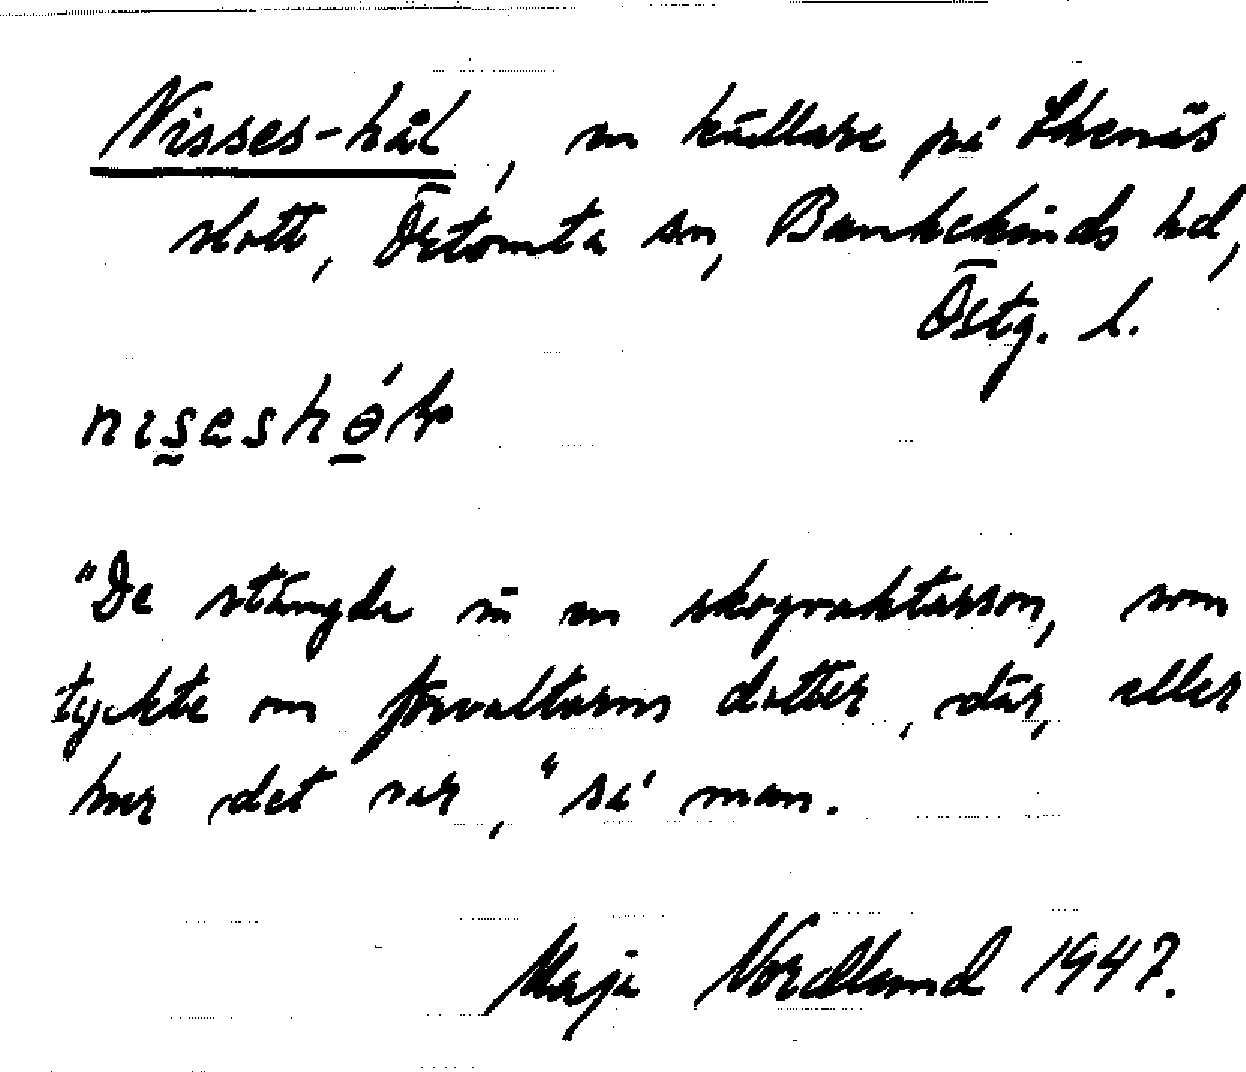 Nisses-hål, en källare på Ekenäs
slott, Örtomta sn, Bankekinds hd,
Östg. l.
"De stängde in en skogvaktarson, som
tyckte om förvaltarns dotter, där, eller
hur det var," sa' man.
Maja Nordlund 1947.